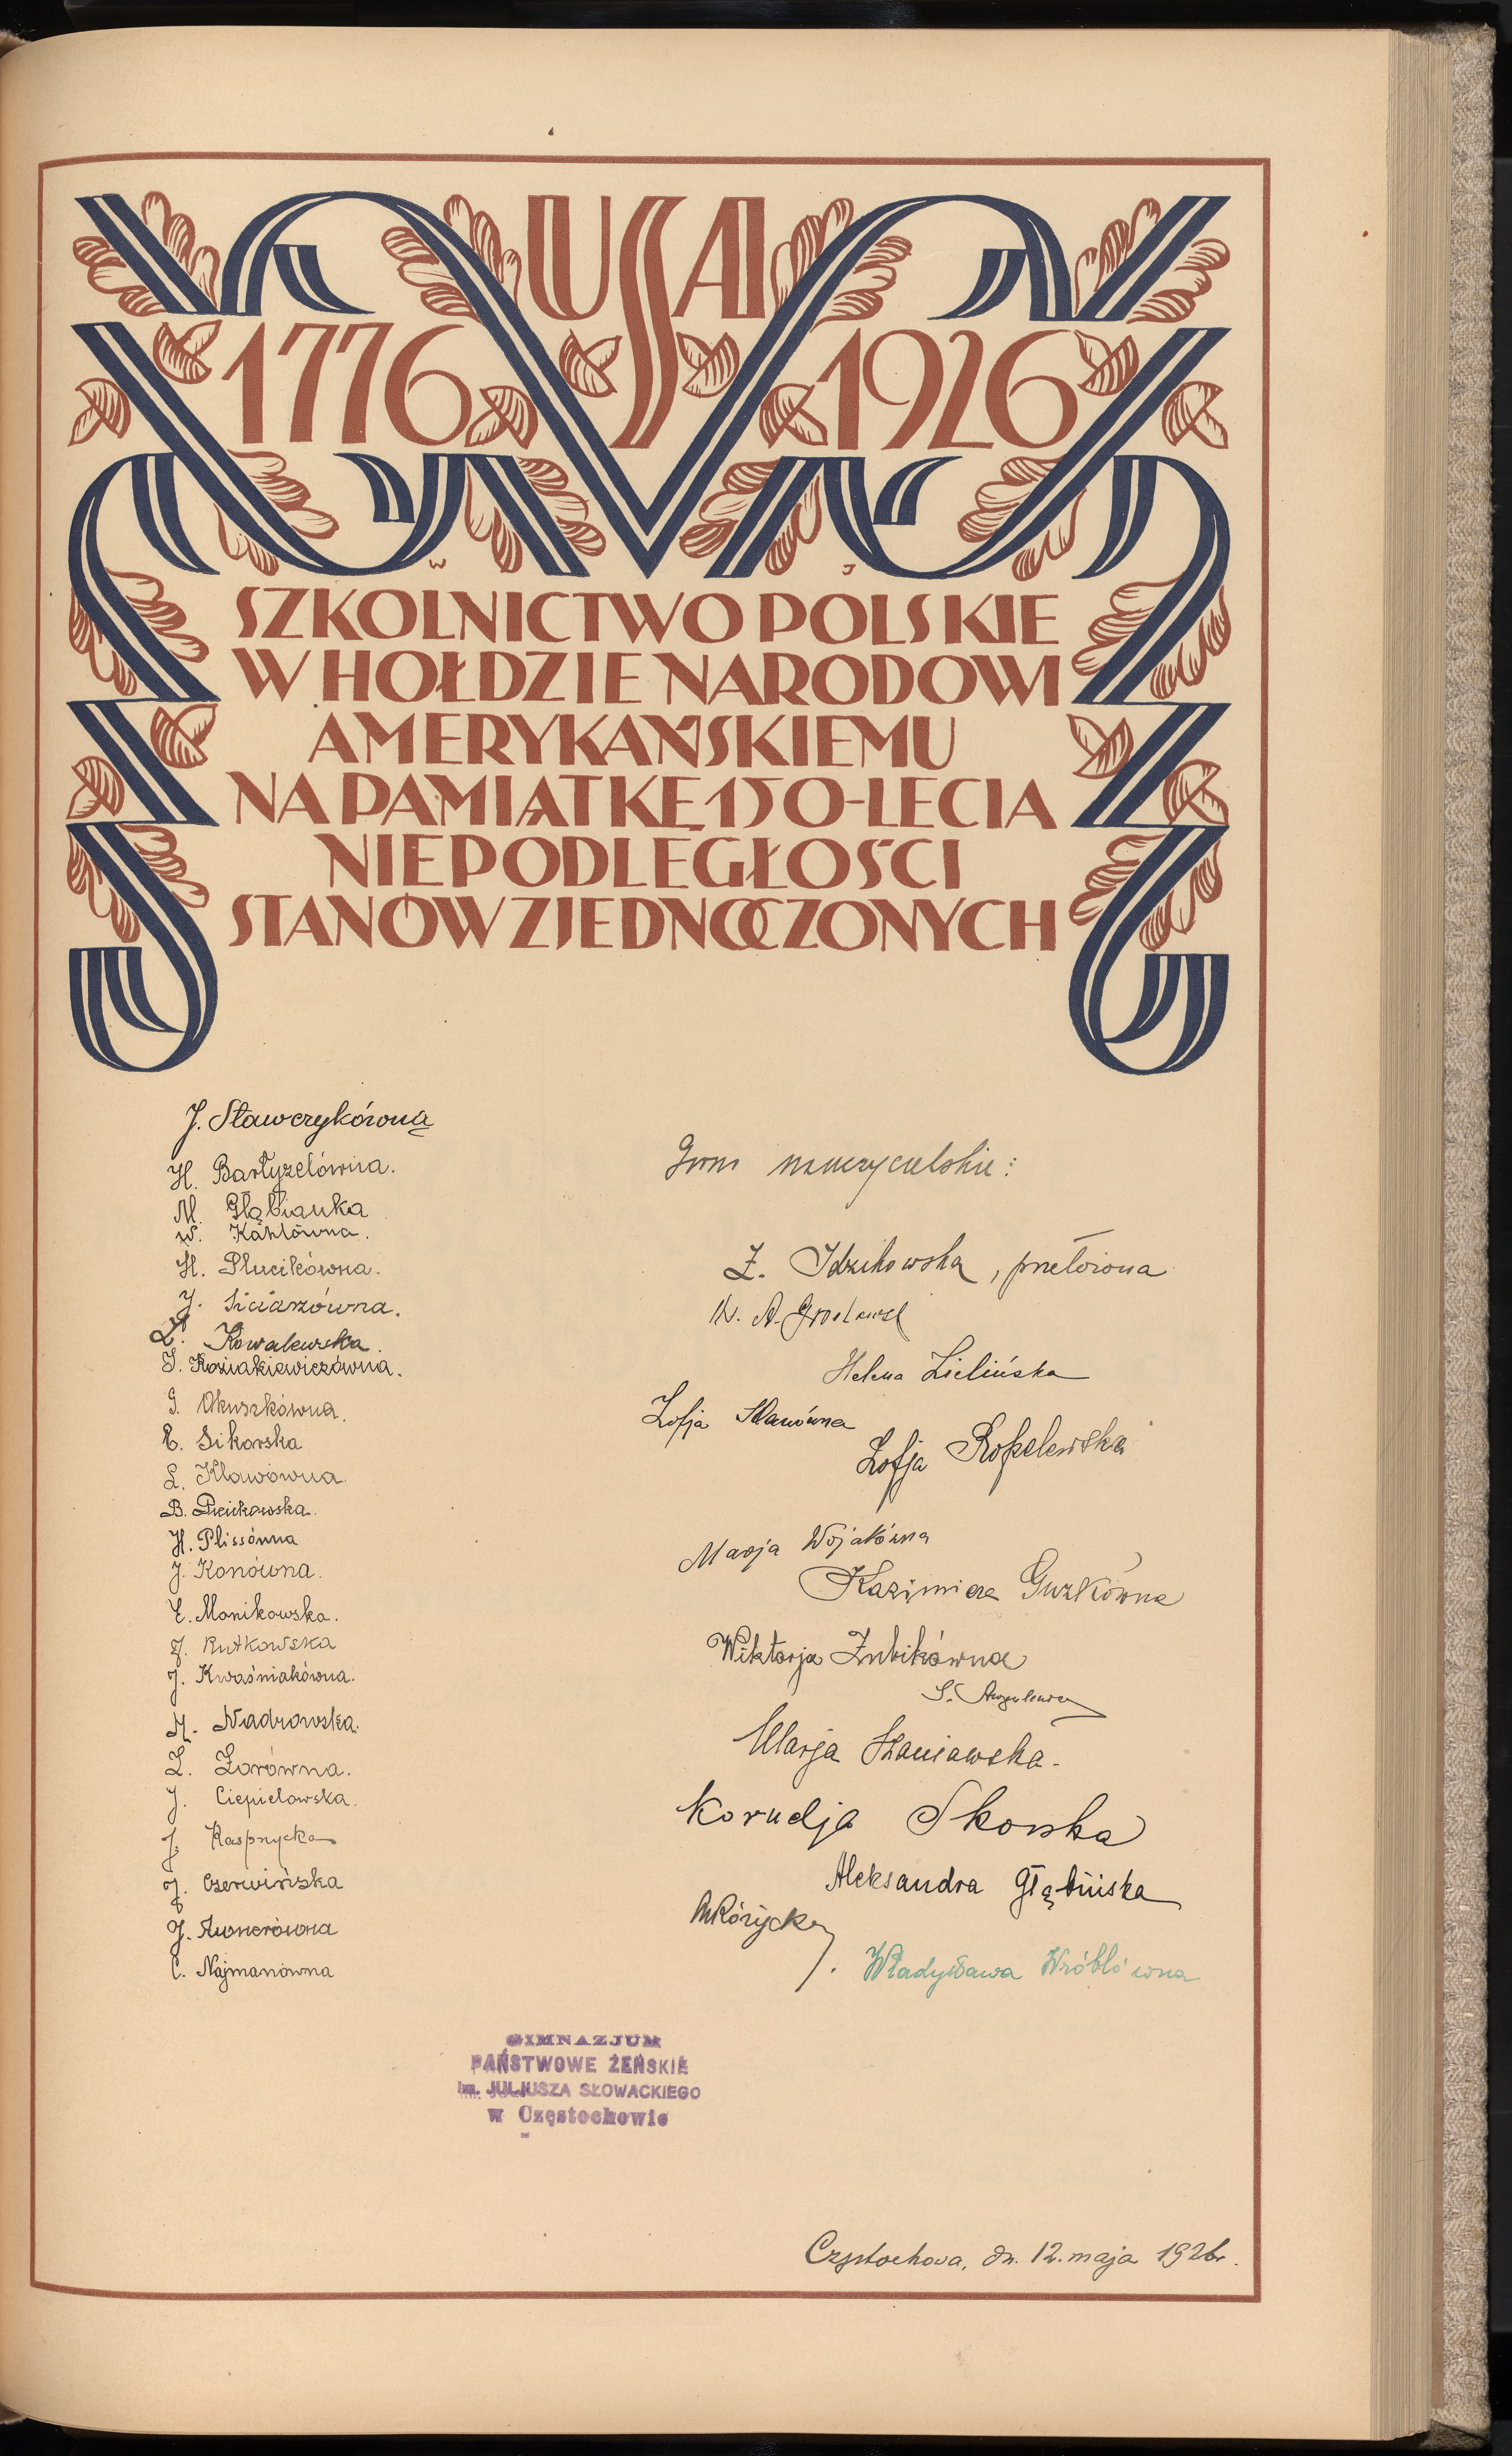 USA
1776 1926
W J
SZKOLNICTWO POLSKIE
W HOŁDZIE NARODOWI
AMERYKAŃSKIEMU
NA PAMIĄTKĘ 150-LECIA
NIEPODLEGŁOŚCI
STANÓW ZJEDNOCZONYCH
J. Sławczykówna
H. Bartyzelówna.
M. Głąbianka
W. Kahlówna.
H. Plucikówna.
J. Siciarzówna.
Kowalewska.
J. Koziakiewiczówna.
Okuszkówna.
E. Sikorska
L. Klawówna.
B.
H. Plissówna
J. Konówna.
E. Monikowska.
J. Rutkowska
J. Kwaśniakówna.
M. Nadrowska.
Z. Zorówna.
J. Ciepielowska.
J. Kasprzycka
J. Czerwińska
J.
C. Najmanówna
Grono nauczycielskie:
Z. Idzikowska, przełożona
Helena Zielińska
Zofja
Zofja Ropelewska
Marja Wojakówna
Kazimiera Guzkówna
Wiktorja Zubikówna
S.
Marja Staniawska.
Kornelja Skorska
Aleksandra Głąbińska
MRóżycka
Władysława Wróblówna
GIMNAZJUM
PAŃSTWOWE ŻEŃSKIE
im. JULJUSZA SŁOWACKIEGO
w Częstochowie
Częstochowa, dn. 12. maja 1926r.